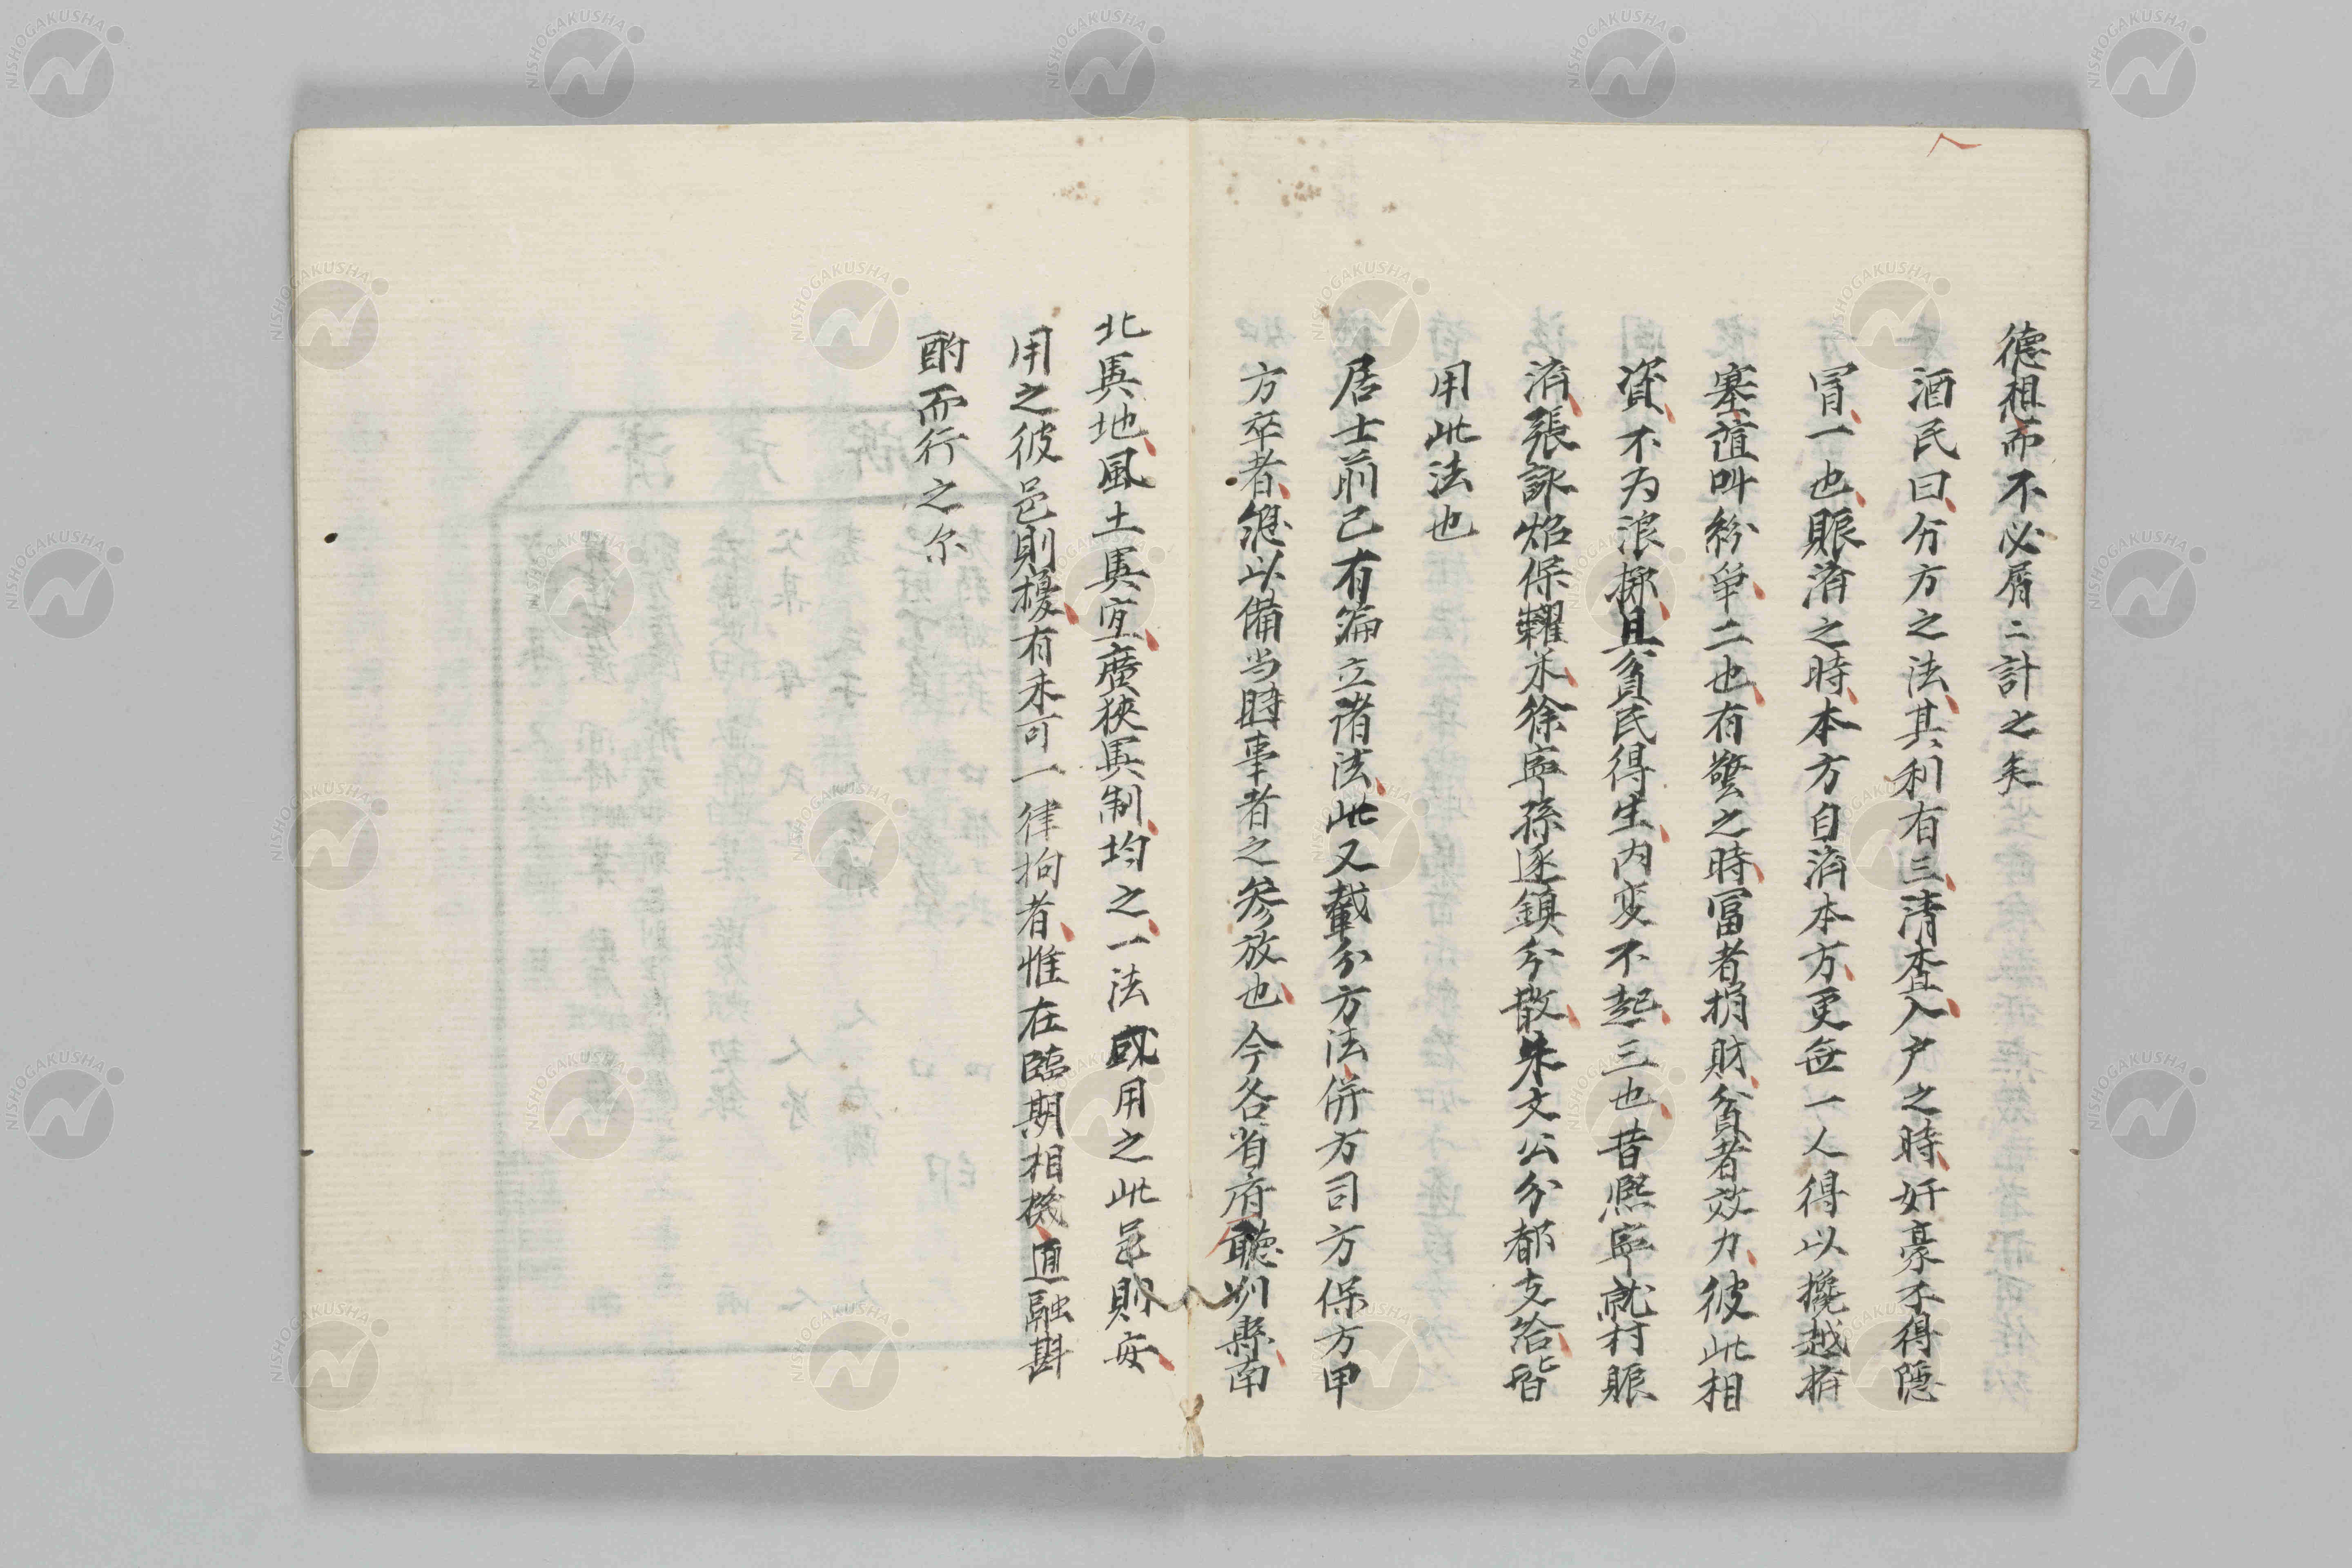 德想而不必屑二計之矣
酒民曰分方之法其利有三清查入户之時奸豪不得隱
冒一也賑濟之時本方自濟本方更無一人得以攙越擠
塞諠叫紛爭二也有警之時冨者捐財貧者效力彼此相
資不为浪擲且貧民得生内变不起三也昔熈寧就村賑
濟張詠炤保糶米徐寧孫逐鎮分散朱文公分都支给皆
用此法也
居士前已有篇立诸法此又載分方法併方司方保方甲
方卒者總以備当時事者之参放也今各省府廳州縣南
北異地風土異宜廣狹異制均之一法或用之此邑則安
用之彼邑則擾有未可一律拘者惟在臨期相機通融斟
酌而行之尓
NISHOGAKUSHA